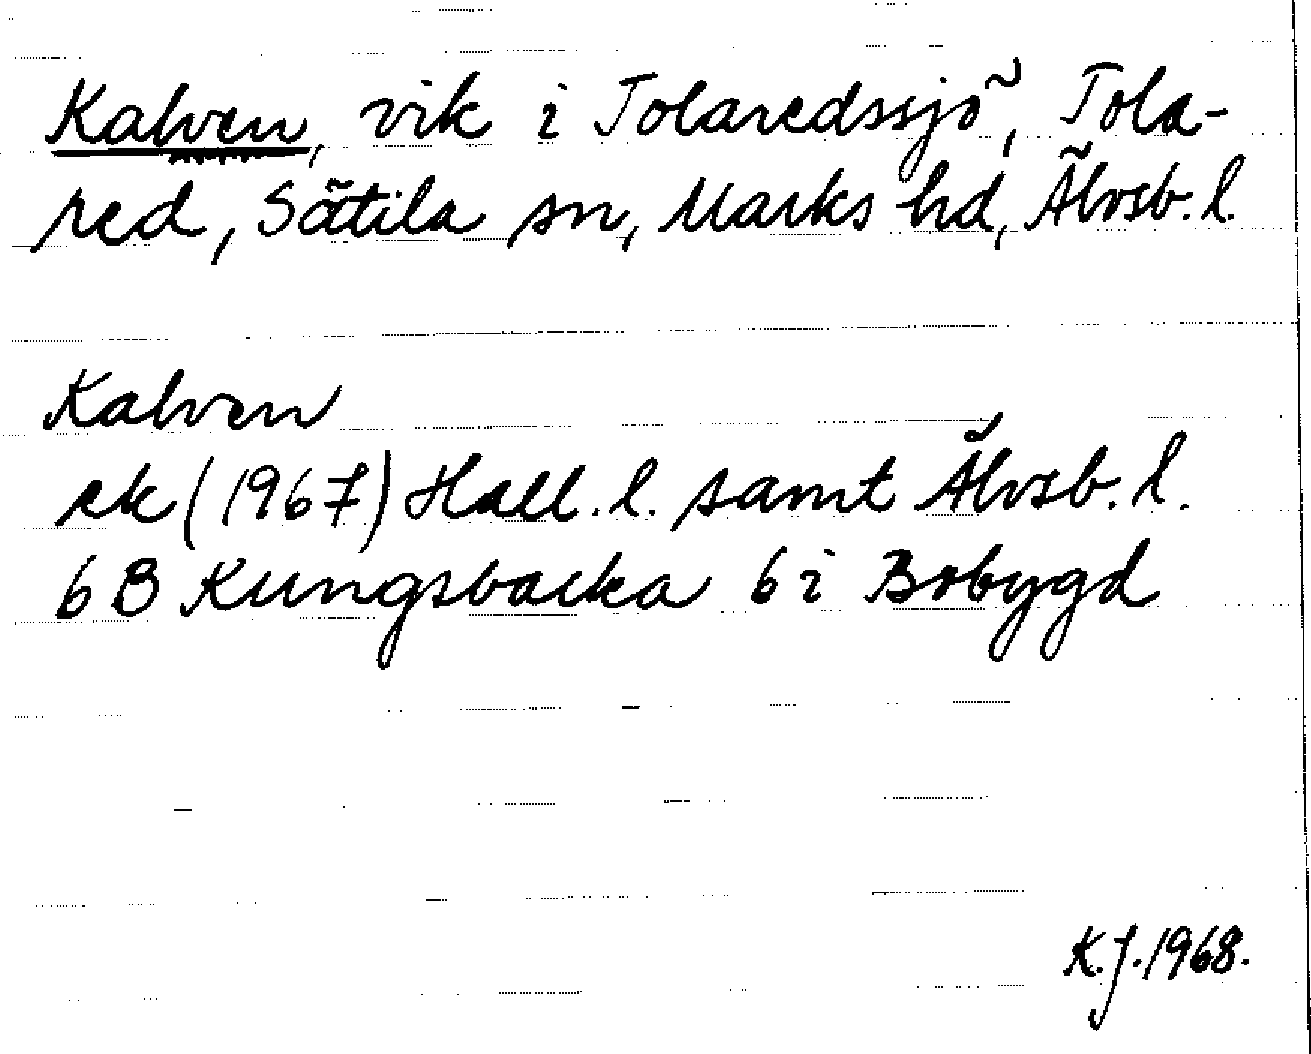 Kalven, vik i Tolaredssjö, Tola-
red, Sätila sn, Marks hd, Älvsb. l.
Kalven
ek (1967) Hall. l. samt Älvsb. l.
6B Kungsbacka 6i Bobygd
K.J. 1968.